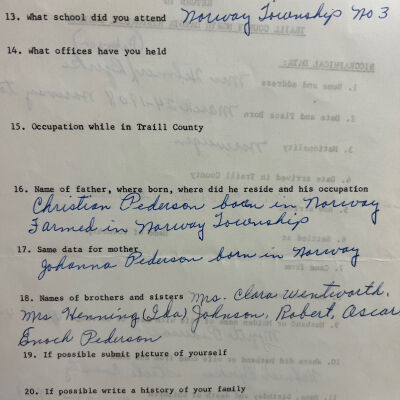 13. What school did you attend Norway Township No 3
14. What offices have you held
15. Occupation while in Traill County
16. Name of father, where born, where did he reside and his occupation
Christian Pederson born in Norway
Farmed in Norway Township
17. Same data for mother
Johanna Pederson born in Norway
18. Names of brothers and sisters Mrs. Clara Wentworth,
Mrs Henning (Ida) Johnson, Robert, Oscar
Enoch Pederson
19. If possible submit picture of yourself
20. If possible write a history of your family